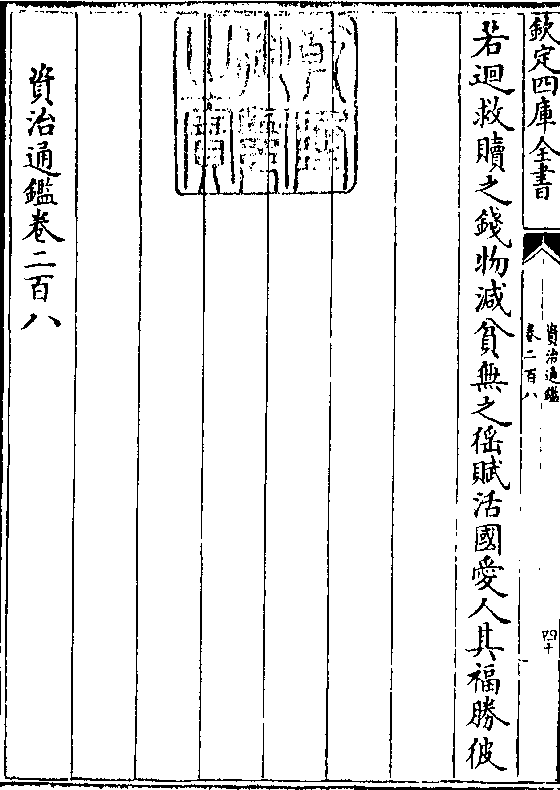 欽定四庫全書
資治通鑑
卷二百八
四十
若迴救贖之錢物減貧無之徭賦活國愛人其福勝彼
資治通鑑卷二百八